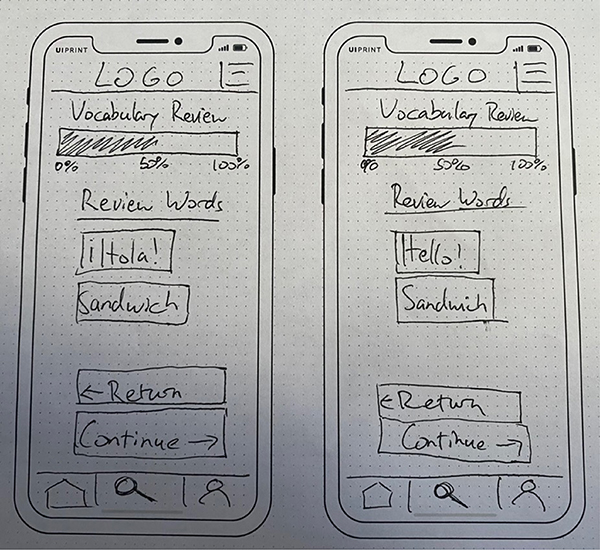 UIPRINT
LOGO
Vocabulary Review
0% 50% 100%
Review Words
¡Hola!
Sandwich
← Return
Continue →
UIPRINT
LOGO
Vocabulary Review
0% 50% 100%
Review Words
Hello!
Sandwich
← Return
Continue →